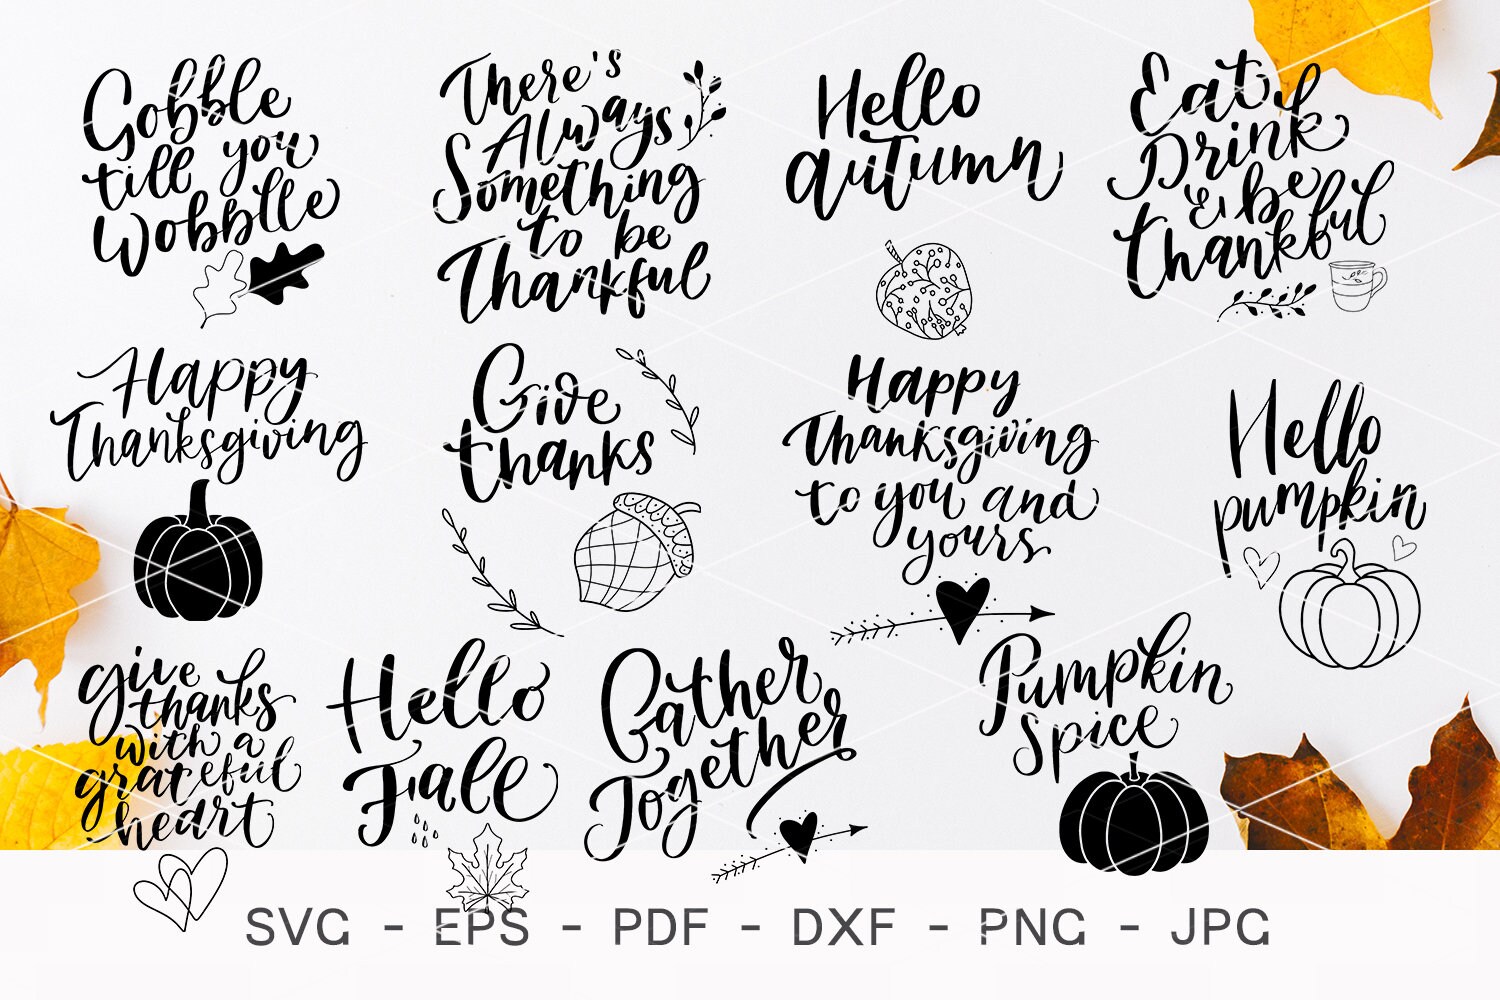 Gobble
till you
Wobblle
There's
Always
Something
to be
Thankful
Hello
autumn
Eat,
Drink
& be
thankful
Happy
Thanksgiving
Give
thanks
Happy
Thanksgiving
to you and
yours
Hello
pumpkin
give
thanks
with a
grateful
heart
Hello
Fall
Gather
Together
Pumpkin
Spice
SVG - EPS - PDF - DXF - PNG - JPG